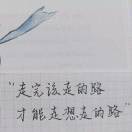 “走完该走的路
才能走想走的路”